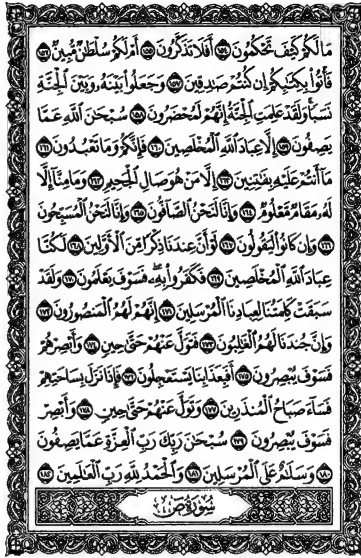 مَا لَكُمْ كَيْفَ تَحْكُمُونَ ١٥٤ أَفَلَا تَذَكَّرُونَ ١٥٥ أَمْ لَكُمْ سُلْطَٰنٌ مُّبِينٌ ١٥٦
فَأْتُوا۟ بِكِتَٰبِكُمْ إِن كُنتُمْ صَٰدِقِينَ ١٥٧ وَجَعَلُوا۟ بَيْنَهُۥ وَبَيْنَ ٱلْجِنَّةِ
نَسَبًا وَلَقَدْ عَلِمَتِ ٱلْجِنَّةُ إِنَّهُمْ لَمُحْضَرُونَ ١٥٨ سُبْحَٰنَ ٱللَّهِ عَمَّا
يَصِفُونَ ١٥٩ إِلَّا عِبَادَ ٱللَّهِ ٱلْمُخْلَصِينَ ١٦٠ فَإِنَّكُمْ وَمَا تَعْبُدُونَ ١٦١
مَآ أَنتُمْ عَلَيْهِ بِفَٰتِنِينَ ١٦٢ إِلَّا مَنْ هُوَ صَالِ ٱلْجَحِيمِ ١٦٣ وَمَا مِنَّآ إِلَّا
لَهُۥ مَقَامٌ مَّعْلُومٌ ١٦٤ وَإِنَّا لَنَحْنُ ٱلصَّآفُّونَ ١٦٥ وَإِنَّا لَنَحْنُ ٱلْمُسَبِّحُونَ
١٦٦ وَإِن كَانُوا۟ لَيَقُولُونَ ١٦٧ لَوْ أَنَّ عِندَنَا ذِكْرًا مِّنَ ٱلْأَوَّلِينَ ١٦٨ لَكُنَّا
عِبَادَ ٱللَّهِ ٱلْمُخْلَصِينَ ١٦٩ فَكَفَرُوا۟ بِهِۦ فَسَوْفَ يَعْلَمُونَ ١٧٠ وَلَقَدْ
سَبَقَتْ كَلِمَتُنَا لِعِبَادِنَا ٱلْمُرْسَلِينَ ١٧١ إِنَّهُمْ لَهُمُ ٱلْمَنصُورُونَ ١٧٢
وَإِنَّ جُندَنَا لَهُمُ ٱلْغَٰلِبُونَ ١٧٣ فَتَوَلَّ عَنْهُمْ حَتَّىٰ حِينٍ ١٧٤ وَأَبْصِرْهُمْ
فَسَوْفَ يُبْصِرُونَ ١٧٥ أَفَبِعَذَابِنَا يَسْتَعْجِلُونَ ١٧٦ فَإِذَا نَزَلَ بِسَاحَتِهِمْ
فَسَآءَ صَبَاحُ ٱلْمُنذَرِينَ ١٧٧ وَتَوَلَّ عَنْهُمْ حَتَّىٰ حِينٍ ١٧٨ وَأَبْصِرْ
فَسَوْفَ يُبْصِرُونَ ١٧٩ سُبْحَٰنَ رَبِّكَ رَبِّ ٱلْعِزَّةِ عَمَّا يَصِفُونَ
١٨٠ وَسَلَٰمٌ عَلَى ٱلْمُرْسَلِينَ ١٨١ وَٱلْحَمْدُ لِلَّهِ رَبِّ ٱلْعَٰلَمِينَ ١٨٢
سُورَةُ صٓ